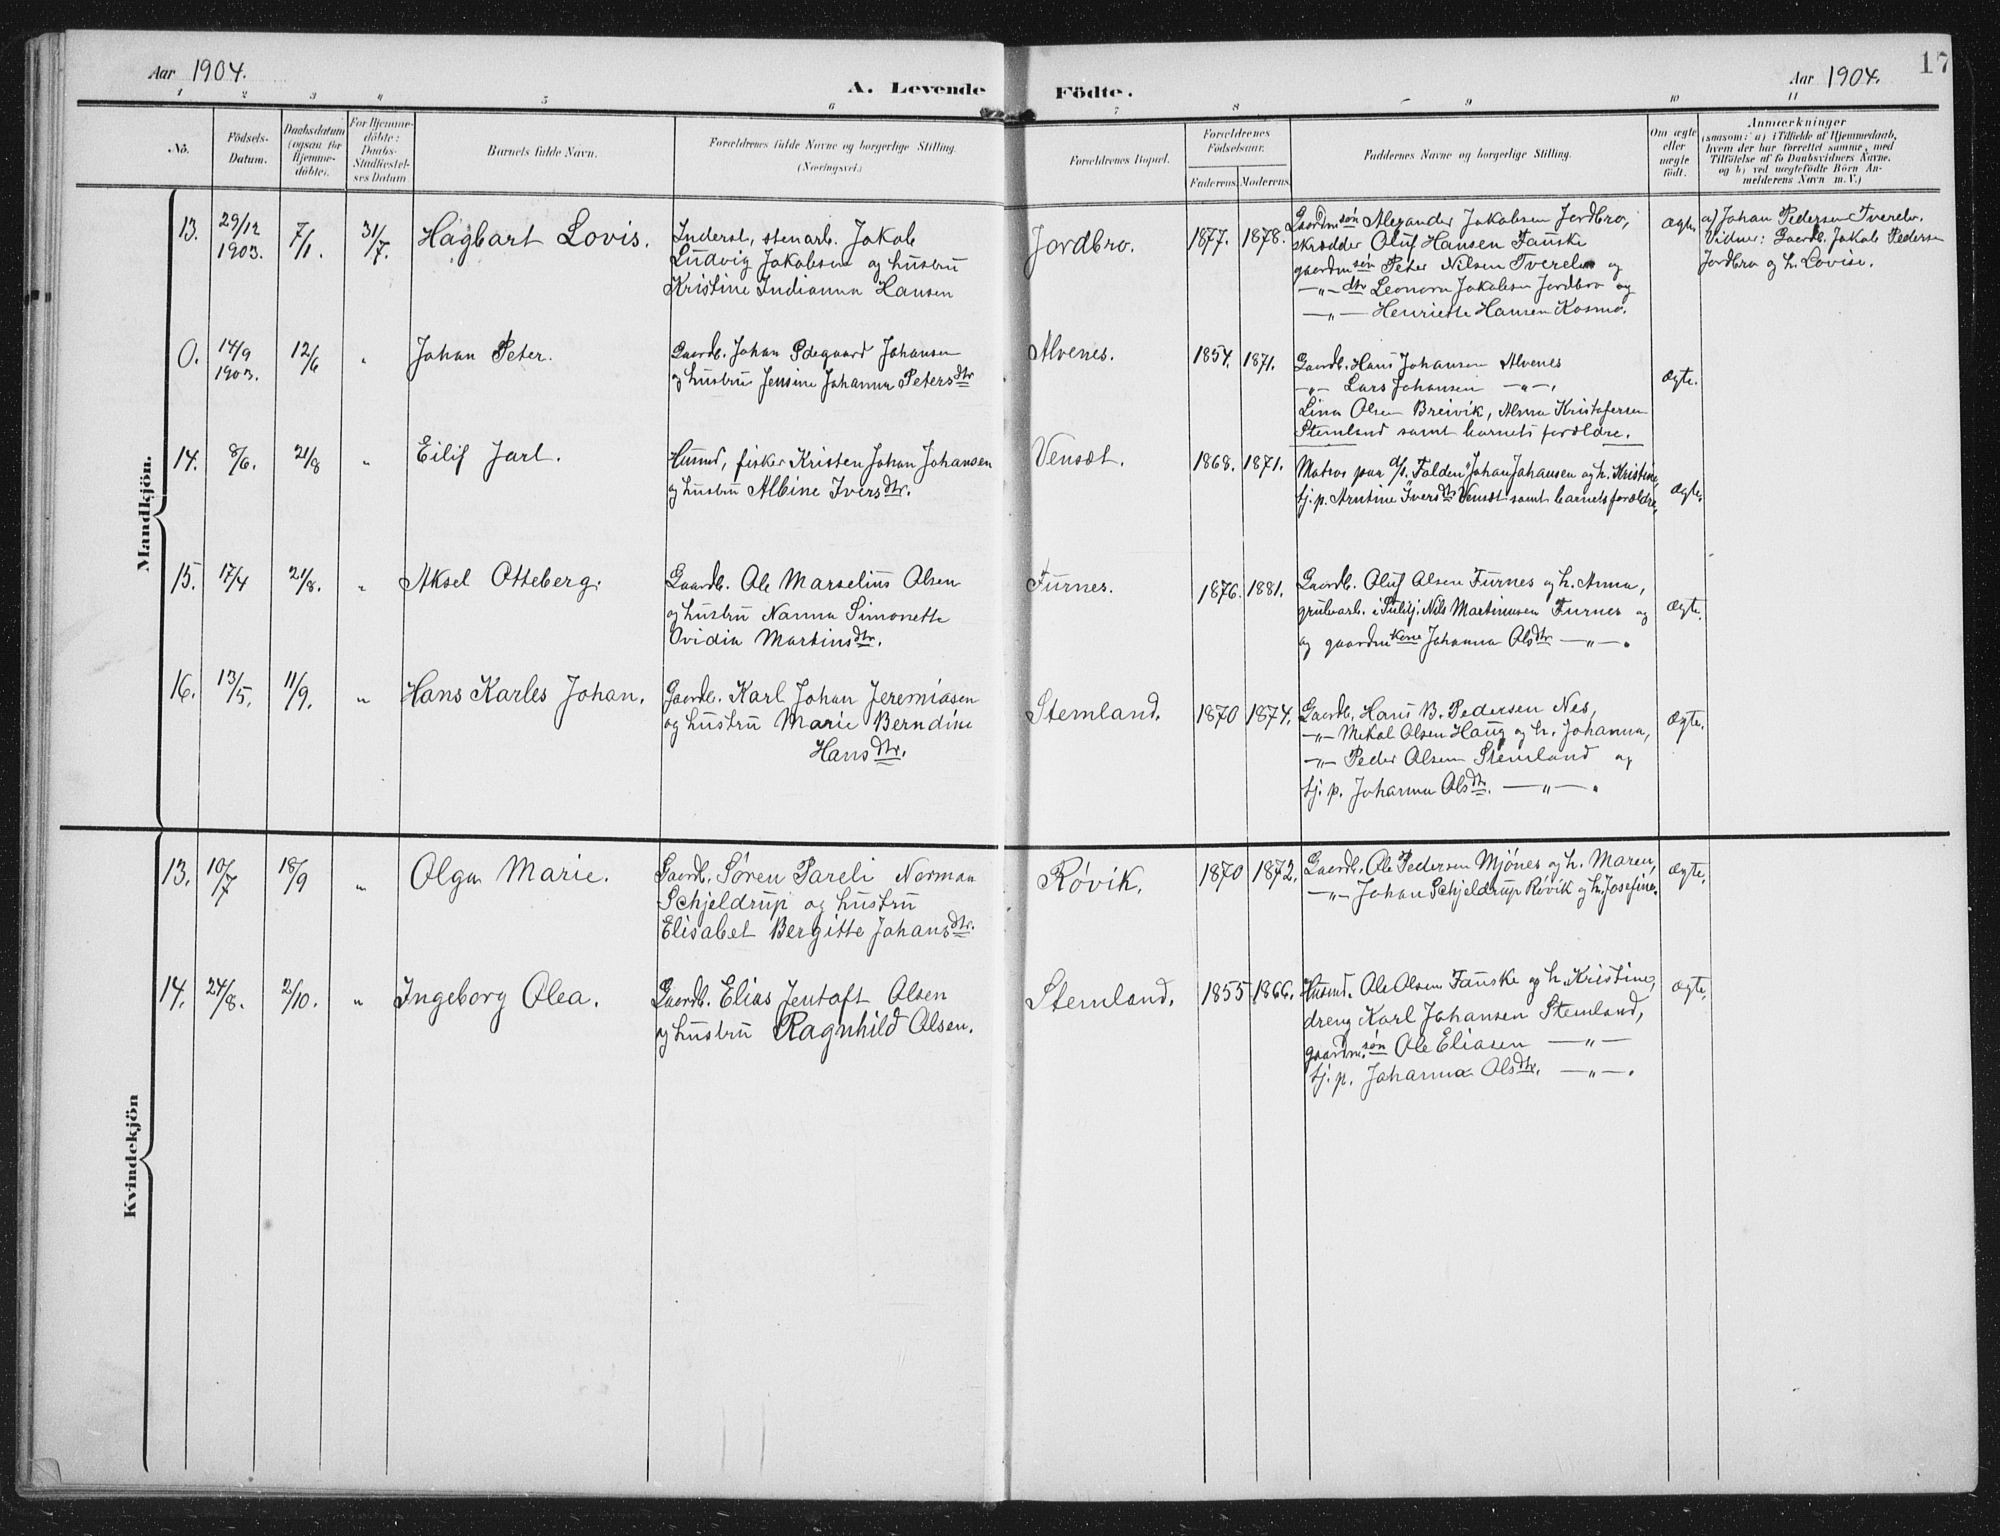 Aar 1904.
A. Levende Födte.
Aar 1904.
17
1 2 3 4 5 6 7 8 9 10 11
No.
Födsels-
Datum.
Daabsdatum
(ogsaa for
Hjemme-
döbte).
For Hjemme-
döbte:
Daabs-
Stadfæstel-
ses Datum
Barnets fulde Navn.
Forældrenes fulde Navne og borgerlige Stilling.
(Næringsvei.)
Forældrenes Bopæl.
Forældrenes
Födselsaar.
Faderens. Moderens.
Faddernes Navne og borgerlige Stilling.
Om ægte
eller
uægte
födt.
Anmærkninger
(saasom: a) i Tilfælde af Hjemmedaab,
hvem der har forrettet samme, med
Tilföielse af to Daabsvidners Navne.
og b) ved uægtefödte Börn An-
melderens Navn m. V.)
Mandkjön.
13.
29/12
1903.
7/1.
31/7.
Hagbart Lovis.
Inderst, stenarb. Jakob
Ludvig Jakobsen og hustru
Kristine Indianna Hansen
Jordbro.
1877. 1878.
Gaardmsön Alexander Jakobsen Jordbro,
skrædder Oluf Hansen Fauske
gaardmsön Peter Nilsen Tverelv og
—„— dtr Leonora Jakobsen Jordbro og
—„— Henriette Hansen Kosmo.
Ægte.
a) Johan Pedersen Tverelv.
Vidner: Gaardb. Jakob Pedersen
Jordbro og h. Lovise.
0.
14/9
1903.
12/6
„
Johan Peter.
Gaardb. Johan Ødegaard Johansen
og hustru Jensine Johanna Petersdtr
Alvenes.
1854. 1871.
Gaardb. Hans Johansen Alvenes
—„— Lars Johansen —„—,
Lina Olsen Breivik, Alma Kristofersen
Stemland samt barnets forældre.
Ægte.
14.
8/6.
21/8
„
Eilif Jarl.
Husmd, fisker Kristen Johan Johansen
og hustru Albine Iversdtr.
Vensæt.
1868. 1871.
Matros paa d/s. "Folden" Johan Johansen og h. Kristine,
tj. p. Arntine Iversdtr Vensæt samt barnets forældre,
Ægte.
15.
17/4
21/8.
„
Aksel Otteberg.
Gaardb. Ole Marselius Olsen
og hustru Nanna Simonette
Ovidia Martinsdtr.
Furnes.
1876. 1881.
Gaardb. Oluf Olsen Furnes og h. Anna,
grubearb. i Sulitj. Nils Martinusen Furnes og
og gaardmkone Johanna Olsdtr —„—.
Ægte.
16.
13/5.
11/9.
„
Hans Karles Johan.
Gaardb. Karl Johan Jeremiasen
og hustru Marie Berndine
Hansdtr.
Stemland.
1870 1874.
Gaardb. Hans B. Pedersen Nes,
—„— Mekal Olsen Haug og h. Johanna,
—„— Peder Olsen Stemland og
tj. p. Johanna Olsdtr. —„—.
Ægte.
Kvindekjön
13.
10/7
18/9
„
Olga Marie.
Gaardb. Sören Pareli Norman
Schjeldrup og hustru
Elisabet Bergitte Johansdtr.
Røvik.
1870 1872.
Gaardb. Ole Pedersen Mjönes og h. Maren,
—„— Johan Schjeldrup Røvik og h. Josefine.
Ægte.
14.
24/8.
2/10.
„
Ingeborg Olea.
Gaardb. Elias Jentoft Olsen
og hustru Ragnhild Olsen.
Stemland.
1855 1866.
Husmd. Ole Olsen Fauske og h. Kristine,
dreng Karl Johansen Stemland,
gaardm.søn Ole Eliasen —„—
tj. p. Johanna Olsdtr. —„—.
Ægte.